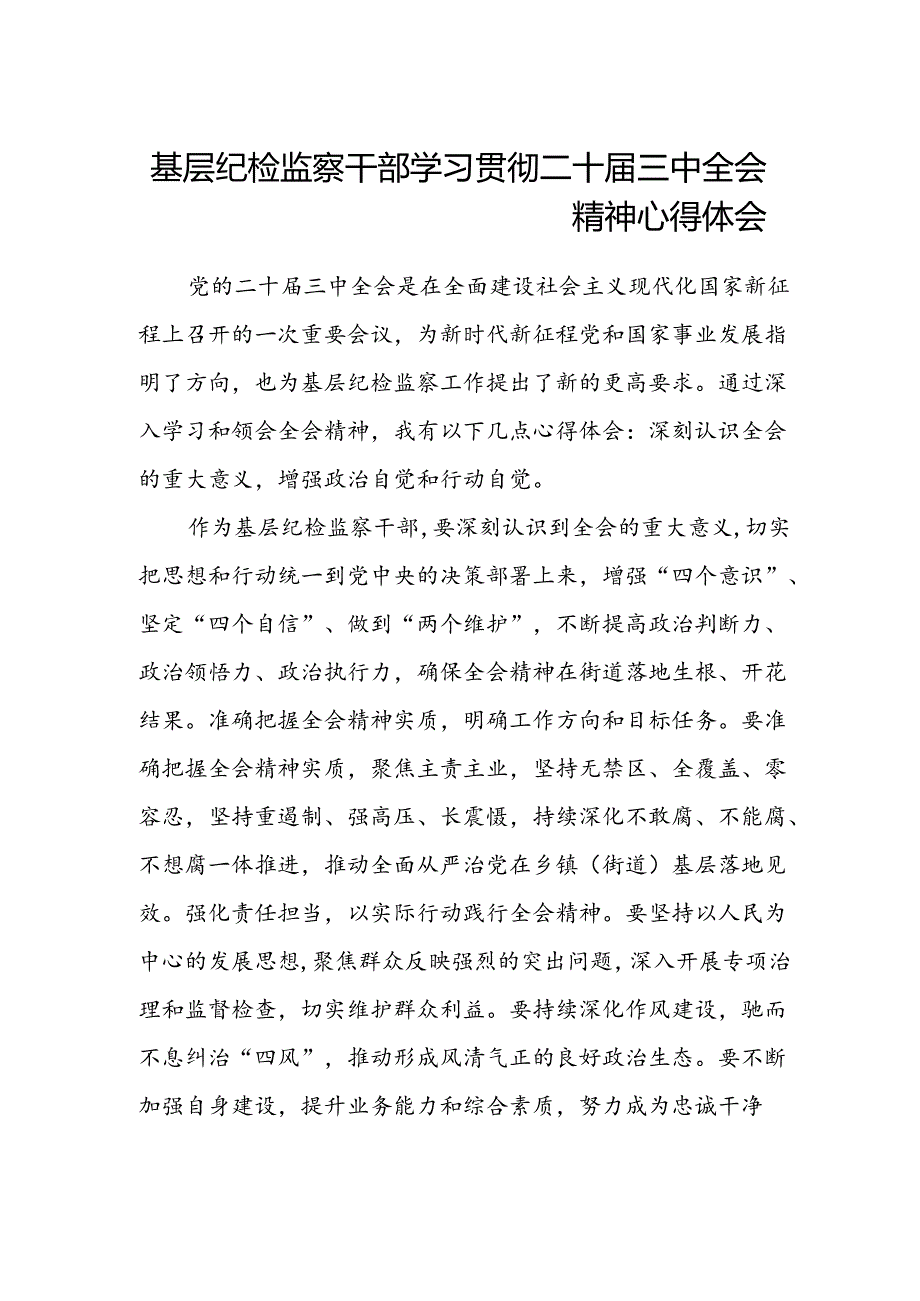 基层纪检监察干部学习贯彻二十届三中全会
精神心得体会
党的二十届三中全会是在全面建设社会主义现代化国家新征
程上召开的一次重要会议，为新时代新征程党和国家事业发展指
明了方向，也为基层纪检监察工作提出了新的更高要求。通过深
入学习和领会全会精神，我有以下几点心得体会：深刻认识全会
的重大意义，增强政治自觉和行动自觉。
作为基层纪检监察干部,要深刻认识到全会的重大意义,切实
把思想和行动统一到党中央的决策部署上来，增强“四个意识”、
坚定“四个自信”、做到“两个维护”，不断提高政治判断力、
政治领悟力、政治执行力，确保全会精神在街道落地生根、开花
结果。准确把握全会精神实质，明确工作方向和目标任务。要准
确把握全会精神实质，聚焦主责主业，坚持无禁区、全覆盖、零
容忍，坚持重遏制、强高压、长震慑，持续深化不敢腐、不能腐、
不想腐一体推进，推动全面从严治党在乡镇（街道）基层落地见
效。强化责任担当，以实际行动践行全会精神。要坚持以人民为
中心的发展思想,聚焦群众反映强烈的突出问题,深入开展专项治
理和监督检查，切实维护群众利益。要持续深化作风建设，驰而
不息纠治“四风”，推动形成风清气正的良好政治生态。要不断
加强自身建设，提升业务能力和综合素质，努力成为忠诚干净